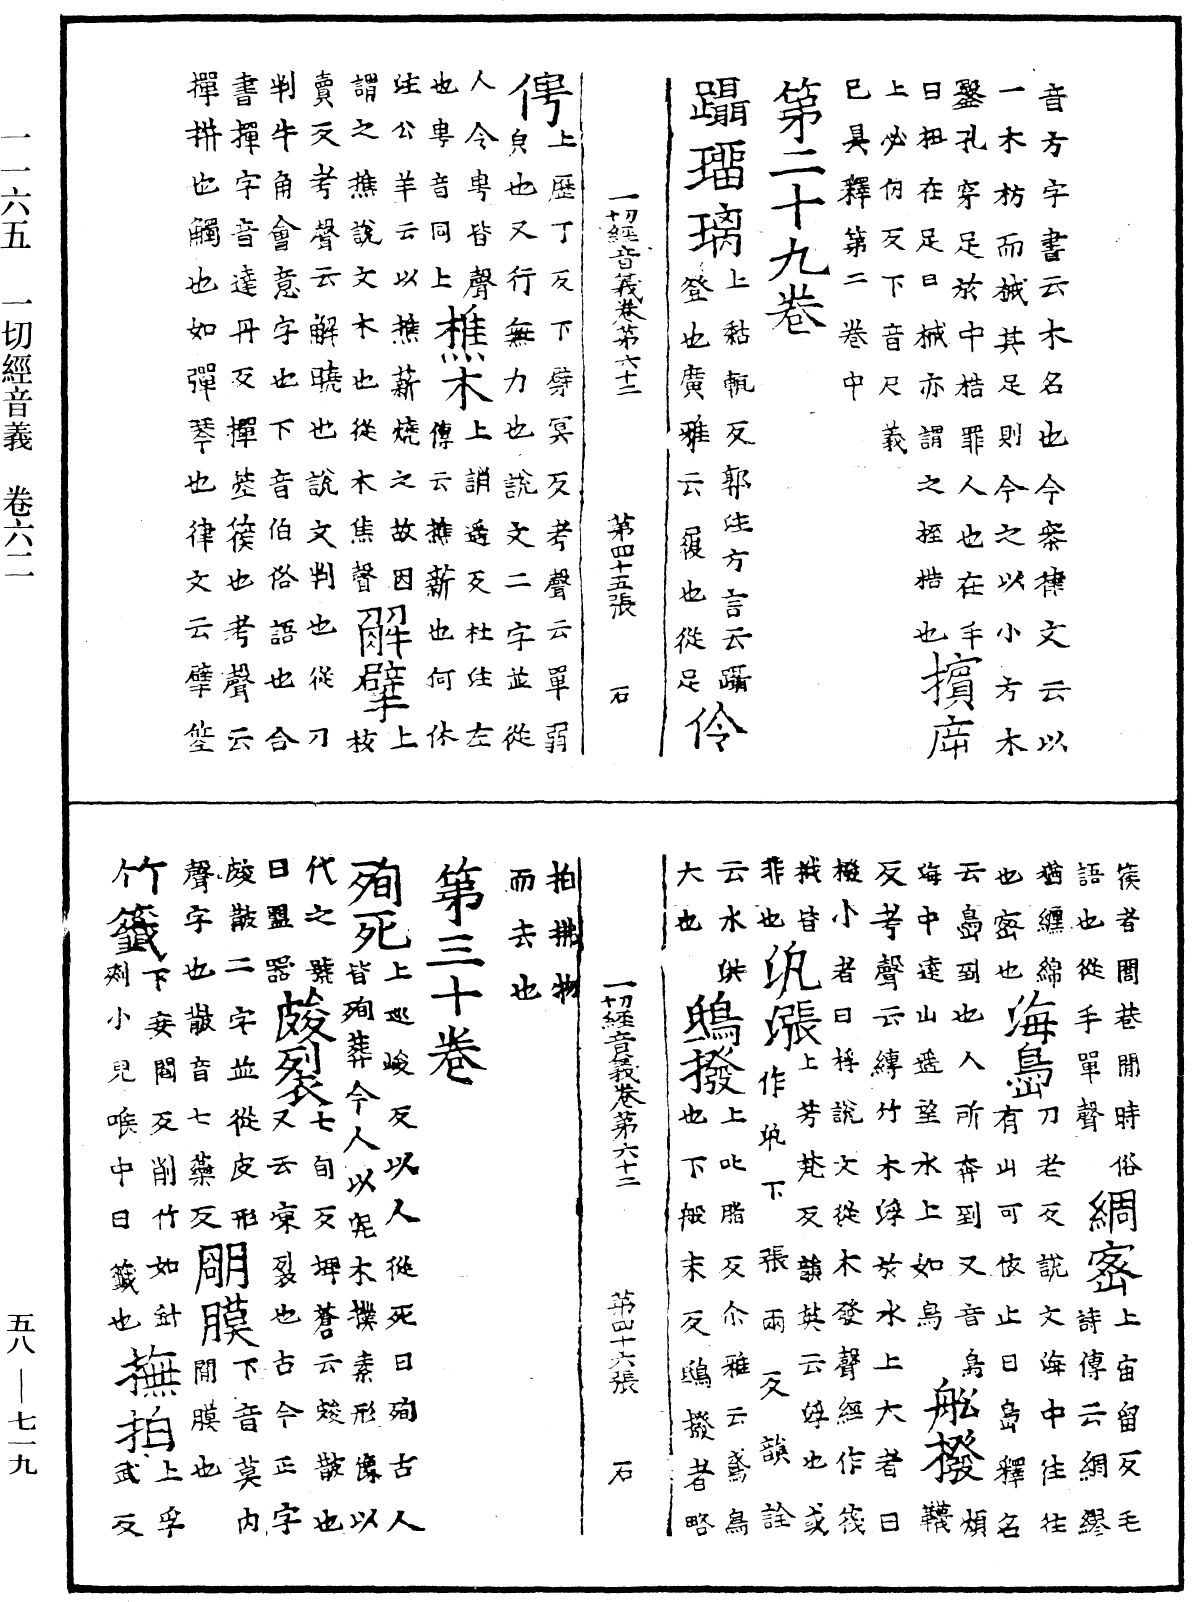 一一六五 一切經音義 卷六二
五八—七一九
音方字書云木名也今案律文云以
一木枋而械其足則今之以小方木
鑿孔穿足於中梏罪人也在手
曰杻在足曰械亦謂之桎梏也擯庌
上必仞反下音尺義
已具釋第二卷中
第二十九卷
躡瑠璃上黏輒反郭注方言云躡
登也廣雅云履也從足伶
一切經音義卷第六十二 第四十五張 石
俜上歷丁反下騁冥反考聲云單弱
皃也又行無力也說文二字並從
人令甹皆聲
也甹音同上樵木上誚遙反杜注左
傳云樵薪也何休
注公羊云以樵薪燒之故因
謂之樵說文木也從木焦聲解擘上
賣反考聲云解曉也說文判也從刀
判牛角會意字也下音伯俗語也合
書撣字音達丹反撣箜篌也考聲云
撣拼也觸也如彈琴也律文云擘箜
篌者閭巷閒時俗
語也從手單聲綢密上宙留反毛
詩傳云綢繆
猶纏綿
也密也海島刀老反說文海中往往
有山可依止曰島釋名
云島到也人所奔到又音鳥
海中遠山遙望水上如鳥舩撥煩
韈
反考聲云縛竹木浮於水上大者曰
橃小者曰桴說文從木發聲經作筏
栰皆
非也汎漲上芳梵反韻英云浮也或
作汎下張兩反韻詮
云水洪
大也鴟撥上叱脂反尒雅云鳶鳥
也下般末反鴟撥者略
一切經音義卷第六十二 第四十六張 石
拍拂物
而去也
第三十卷
殉死上巡峻反以人從死曰殉古人
皆殉葬今人以宅木撲素形像以
代之號
曰盟器皴裂七旬反埤蒼云皴皵也
又云凍裂也古今正字
皴皵二字並從皮形
聲字也皵音七藥反䐃膜下音莫內
閒膜也
竹籤下妾閻反削竹如針
剌小兒喉中曰籤也撫拍上孚
武反